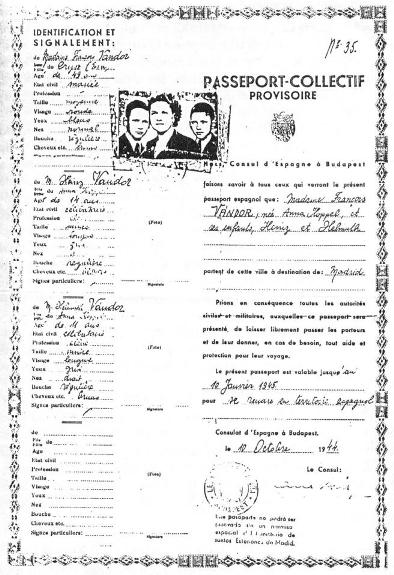 IDENTIFICATION ET
SIGNALEMENT:
de Madame François Vandor
Age de 43 ans
Etat civil mariée
Profession
Taille moyenne
Visage ronde
Yeux bleus
Nez normal
Bouche régulière
Cheveux etc.
Signes particuliers:
Signature
de M. Henz Vandor
Age de 14 ans
Etat civil célibataire
Profession
Taille
Visage
Yeux gris
Nez
Bouche régulière
Cheveux etc.
Signes particuliers:
(Foto)
Signature
de M. Vandor
Age de 11 ans
Etat civil célibataire
Profession élève
Taille
Visage longue
Yeux gris
Nez droit
Bouche régulière
Cheveux etc. bruns
Signes particuliers:
(Foto)
Signature
de
Fils
Fille de
Age
Etat civil
Profession
Taille
Visage
Yeux
Nez
Bouche
Cheveux etc.
Signes particuliers:
(Foto)
Signature
No 35.
PASSEPORT-COLLECTIF
PROVISOIRE
Nous, Consul d'Espagne à Budapest
faisons savoir à tous ceux qui verront le présent
passeport espagnol que: Madame François
VANDOR, née Anna Hoppel, et
ses enfants, Henz et Helmuth
partent de cette ville à destination de: Madride
Prions en conséquence toutes les autorités
civiles et militaires, auxquelles ce passeport sera
présenté, de laisser librement passer les porteurs
et de leur donner, en cas de besoin, tout aide et
protection pour leur voyage.
Le présent passeport est valable jusqu'au
10 Janvier 1945.
pour se rendre en territoire espagnol
Consulat d'Espagne à Budapest,
le 10 Octobre 1944.
Le Consul:
Este pasaporte no podrá ser
sin un permiso
especial del Ministerio de
Asuntos Exteriores de Madrid.